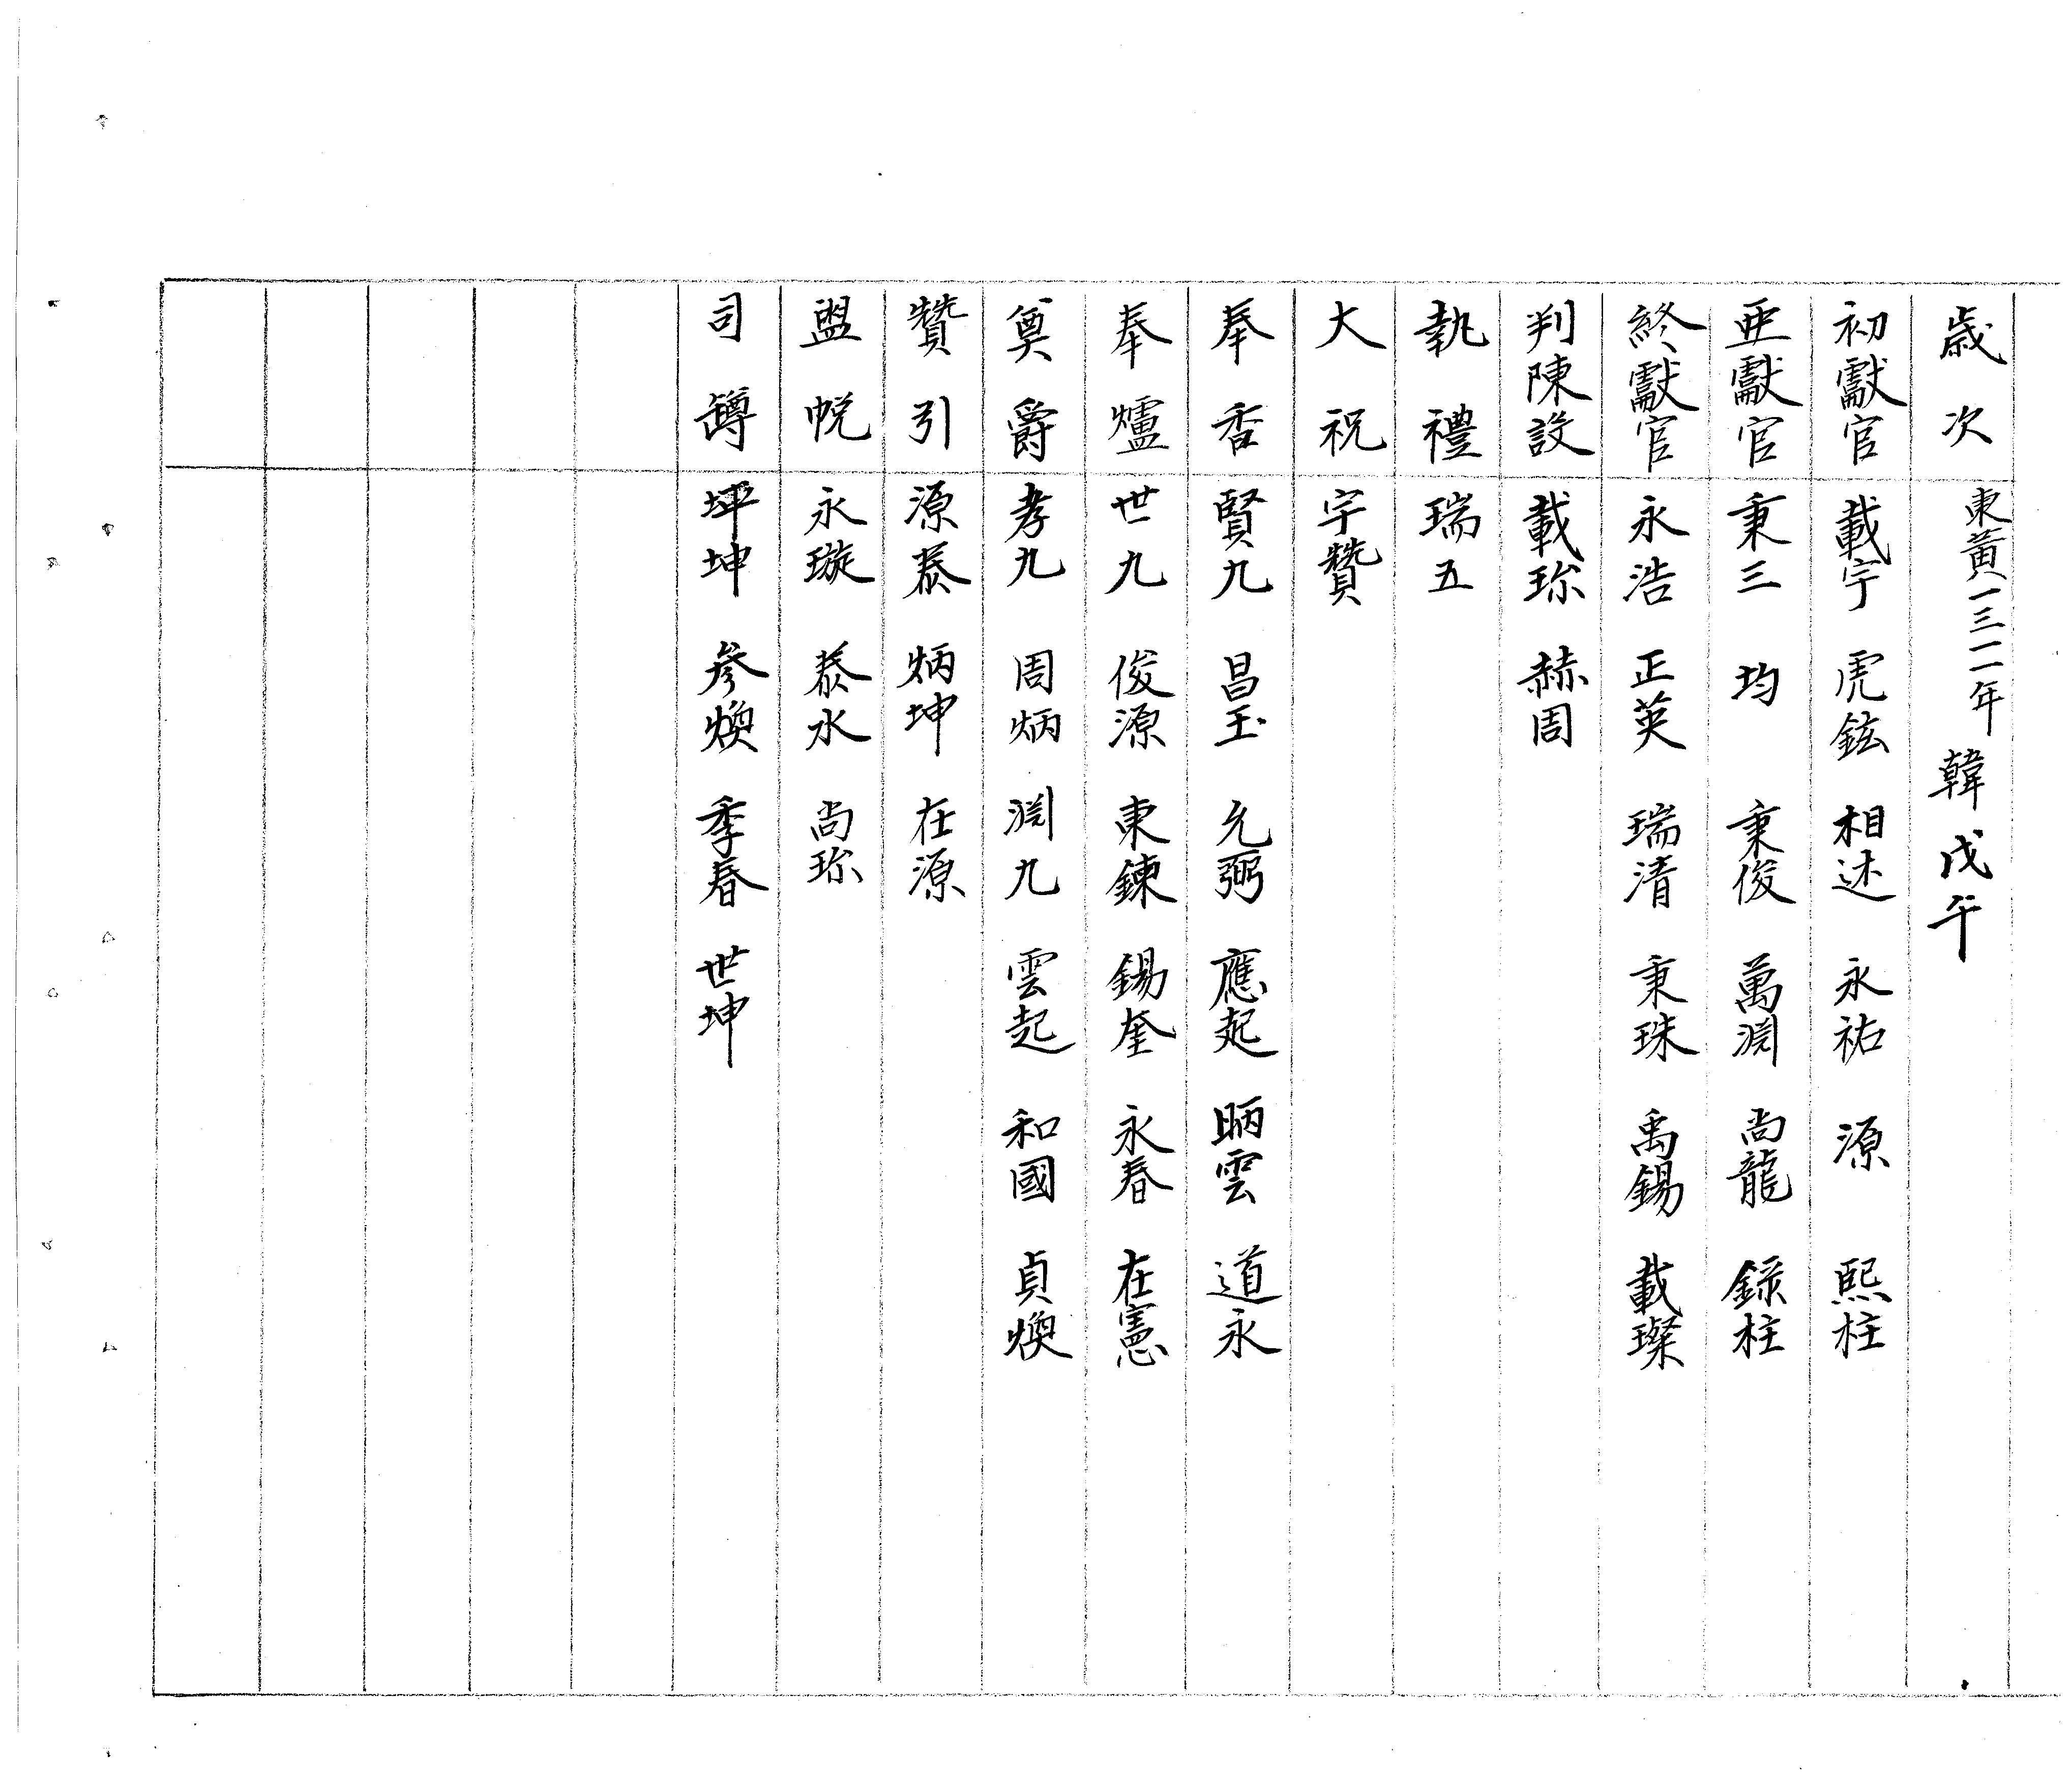 歲次 東黃一三一一年 韓戊午
初獻官 載宇 虎鉉 相述 永祐 源 熙柱
亞獻官 秉三 均 秉俊 萬渕 尚龍 錄柱
終獻官 永浩 正英 瑞清 秉珠 禹錫 載璨
判陳設 載珎 赫周
執禮 瑞五
大祝 宇贊
奉香 賢九 昌玉 允弼 應起 昞雲 道永
奉爐 世九 俊源 東鍊 錫奎 永春 在憲
奠爵 孝九 周炳 渕九 雲起 和國 貞煥
贊引 源泰 炳坤 在源
盥帨 永璇 泰水 尚珎
司罇 坪坤 參煥 季春 世坤